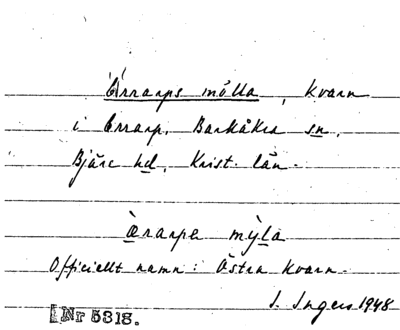 Errarps mölla, kvarn
i Errarp, Barkåkra sn,
Bjäre hd, Krist. län.
ærarpa mỳla
Officiellt namn: Östra kvarn.
I. Ingers 1948
Nr 5318.